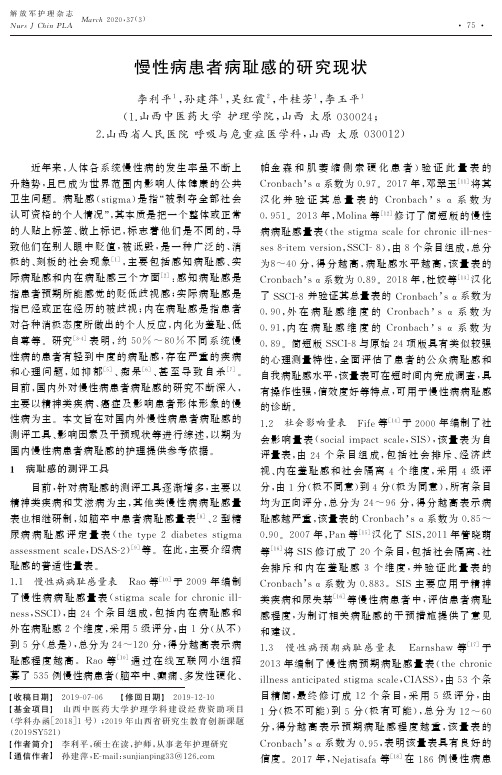 解放军护理杂志
Nurs J Chin PLA
March 2020,37(3)
• 75 •
慢性病患者病耻感的研究现状
李利平¹,孙建萍¹,吴红霞²,牛桂芳¹,李玉平¹
(1.山西中医药大学 护理学院,山西 太原 030024;
2.山西省人民医院 呼吸与危重症医学科,山西 太原 030012)
近年来,人体各系统慢性病的发生率呈不断上
升趋势,且已成为世界范围内影响人体健康的公共
卫生问题。病耻感(stigma)是指“被剥夺全部社会
认可资格的个人情况”,其本质是把一个整体或正常
的人贴上标签、做上标记,标志着他们是不同的,导
致他们在别人眼中贬值、被诋毁,是一种广泛的、消
极的、刻板的社会现象[1],主要包括感知病耻感、实
际病耻感和内在病耻感三个方面[2];感知病耻感是
指患者预期所能感觉的贬低歧视感;实际病耻感是
指已经或正在经历的被歧视;内在病耻感是指患者
对各种消极态度所做出的个人反应,内化为羞耻、低
自尊等。研究[3-4]表明,约 50%～80%不同系统慢
性病的患者有轻到中度的病耻感,存在严重的疾病
和心理问题,如抑郁[5]、痴呆[6]、甚至导致自杀[7]。
目前,国内外对慢性病患者病耻感的研究不断深入,
主要以精神类疾病、癌症及影响患者形体形象的慢
性病为主。本文旨在对国内外慢性病患者病耻感的
测评工具、影响因素及干预现状等进行综述,以期为
国内慢性病患者病耻感的护理提供参考依据。
1 病耻感的测评工具
目前,针对病耻感的测评工具逐渐增多,主要以
精神类疾病和艾滋病为主,其他类慢性病病耻感量
表也相继研制,如脑卒中患者病耻感量表[8]、2型糖
尿病病耻感评定量表(the type 2 diabetes stigma
assessment scale,DSAS-2)[9]等。在此,主要介绍病
耻感的普适性量表。
1.1 慢性病病耻感量表 Rao等[10]于 2009 年编制
了慢性病病耻感量表(stigma scale for chronic ill-
ness,SSCI),由 24 个条目组成,包括内在病耻感和
外在病耻感2个维度,采用5级评分,由 1 分(从不)
到5分(总是),总分为24～120分,得分越高表示病
耻感程度越高。Rao等[10]通过在线互联网小组招
募了 535 例慢性病患者(脑卒中、癫痫、多发性硬化、
【收稿日期】 2019-07-06 【修回日期】 2019-12-10
【基金项目】 山西中医药大学护理学科建设经费资助项目
(学科办函[2018]1号);2019年山西省研究生教育创新课题
(2019SY521)
【作者简介】 李利平,硕士在读,护师,从事老年护理研究
【通信作者】 孙建萍,E-mail:sunjianping33@126.com
帕金森和肌萎缩侧索硬化患者)验证此量表的
Cronbach's α系数为0.97。2017年,邓翠玉[11]将其
汉化并验证其总量表的 Cronbach's α 系数为
0.951。2013年,Molina 等[12]修订了简短版的慢性
病病耻感量表(the stigma scale for chronic ill-nes-
ses 8-item version,SSCI- 8),由 8 个条目组成,总分
为8～40 分,得分越高,病耻感水平越高,该量表的
Cronbach's α系数为0.89。2018年,杜姣等[13]汉化
了 SSCI-8 并验证其总量表的 Cronbach's α系数为
0.90,外在病耻感维度的 Cronbach's α系数为
0.91,内在病耻感维度的 Cronbach's α系数为
0.89。简短版SSCI-8与原始24项版具有类似较强
的心理测量特性,全面评估了患者的公众病耻感和
自我病耻感水平,该量表可在短时间内完成调查,具
有操作性强、信效度好等特点,可用于慢性病病耻感
的诊断。
1.2 社会影响量表 Fife等[14]于 2000 年编制了社
会影响量表(social impact scale,SIS),该量表为自
评量表,由 24 个条目组成,包括社会排斥、经济歧
视、内在羞耻感和社会隔离 4 个维度,采用 4 级评
分,由1分(极不同意)到4分(极为同意),所有条目
均为正向评分,总分为 24～96 分,得分越高表示病
耻感越严重,该量表的Cronbach's α系数为0.85～
0.90。2007年,Pan等[15]汉化了SIS,2011年管晓萌
等[16]将SIS修订成了 20 个条目,包括社会隔离、社
会排斥和内在羞耻感 3 个维度,并验证此量表的
Cronbach's α系数为0.883。SIS 主要应用于精神
类疾病和尿失禁[16]等慢性病患者中,评估患者病耻
感程度,为制订相关病耻感的干预措施提供了意见
和建议。
1.3 慢性病预期病耻感量表 Earnshaw 等[17]于
2013年编制了慢性病预期病耻感量表(the chronic
illness anticipated stigma scale,CIASS),由 53 个条
目精简,最终修订成 12 个条目,采用 5 级评分,由
1分(极不可能)到 5 分(极有可能),总分为 12～60
分,得分越高表示预期病耻感程度越重,该量表的
Cronbach's α系数为0.95,表明该量表具有良好的
信度。2017 年,Nejatisafa 等[18]在 186 例慢性病患